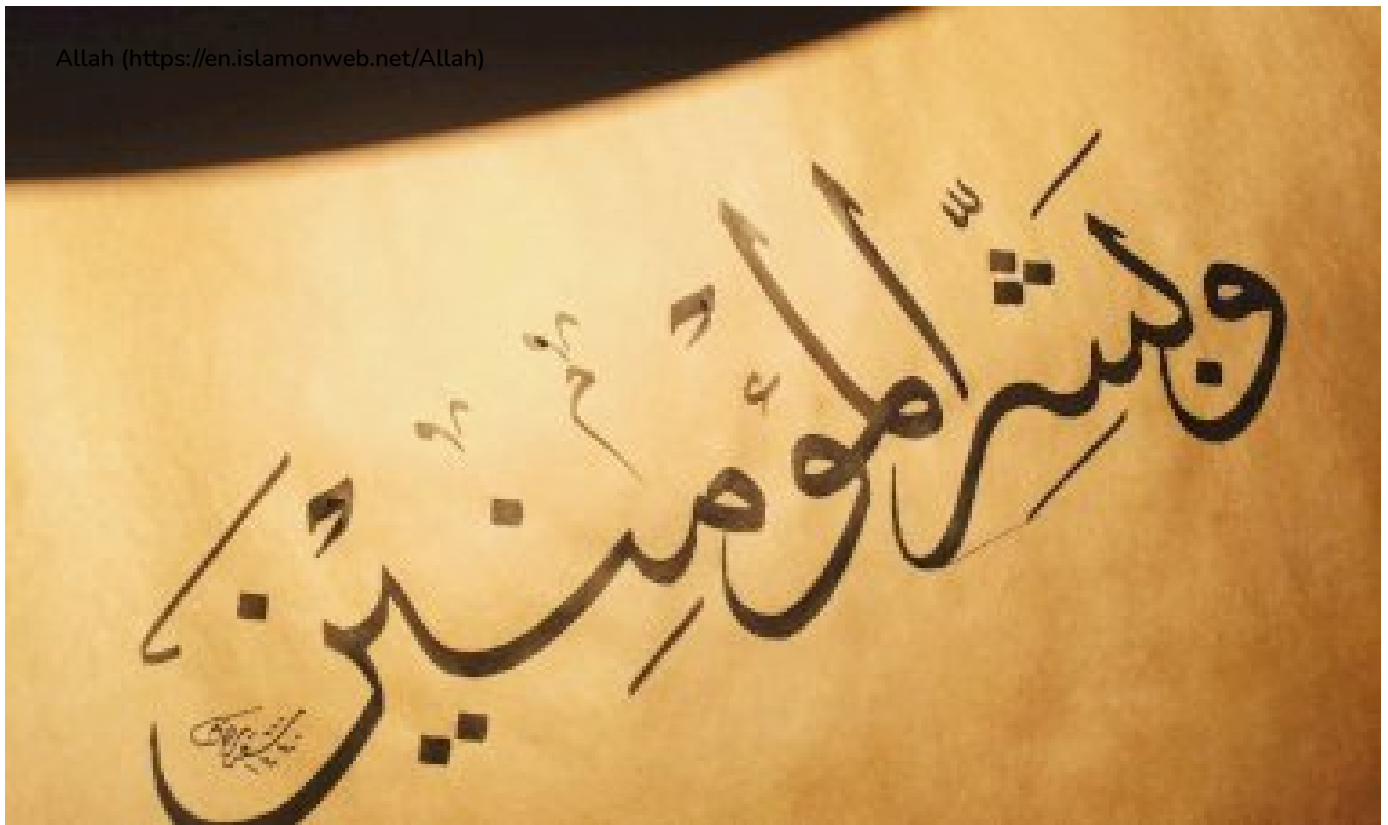 Allah (https://en.islamonweb.net/Allah)
وَبَشِّرِ الْمُؤْمِنِينَ